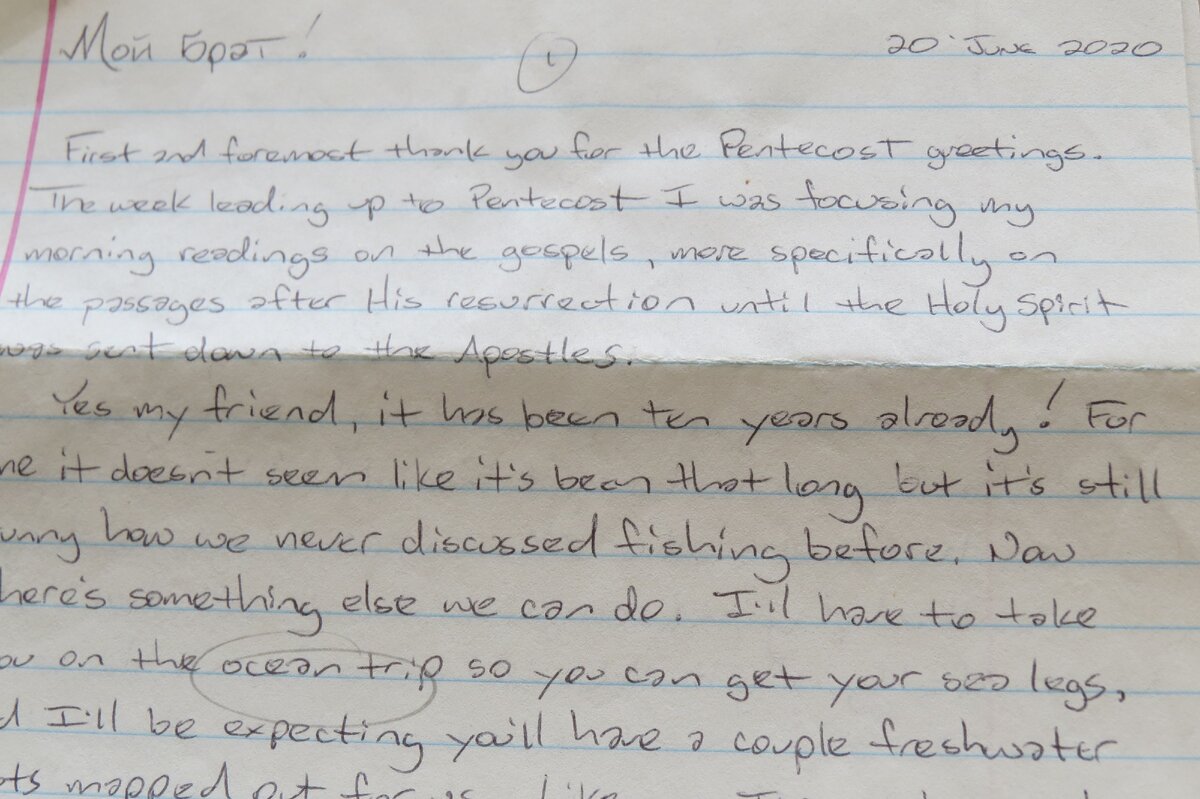 Мой Брат!
1
20 June 2020
First and foremost thank you for the Pentecost greetings.
The week leading up to Pentecost I was focusing my
morning readings on the gospels, more specifically on
the passages after His resurrection until the Holy Spirit
was sent down to the Apostles.
Yes my friend, it has been ten years already! For
me it doesn't seem like it's been that long but it's still
unny how we never discussed fishing before. Now
here's something else we can do. I'll have to take
ou on the ocean trip so you can get your sea legs,
d I'll be expecting you'll have a couple freshwater
ts mapped out for us. like